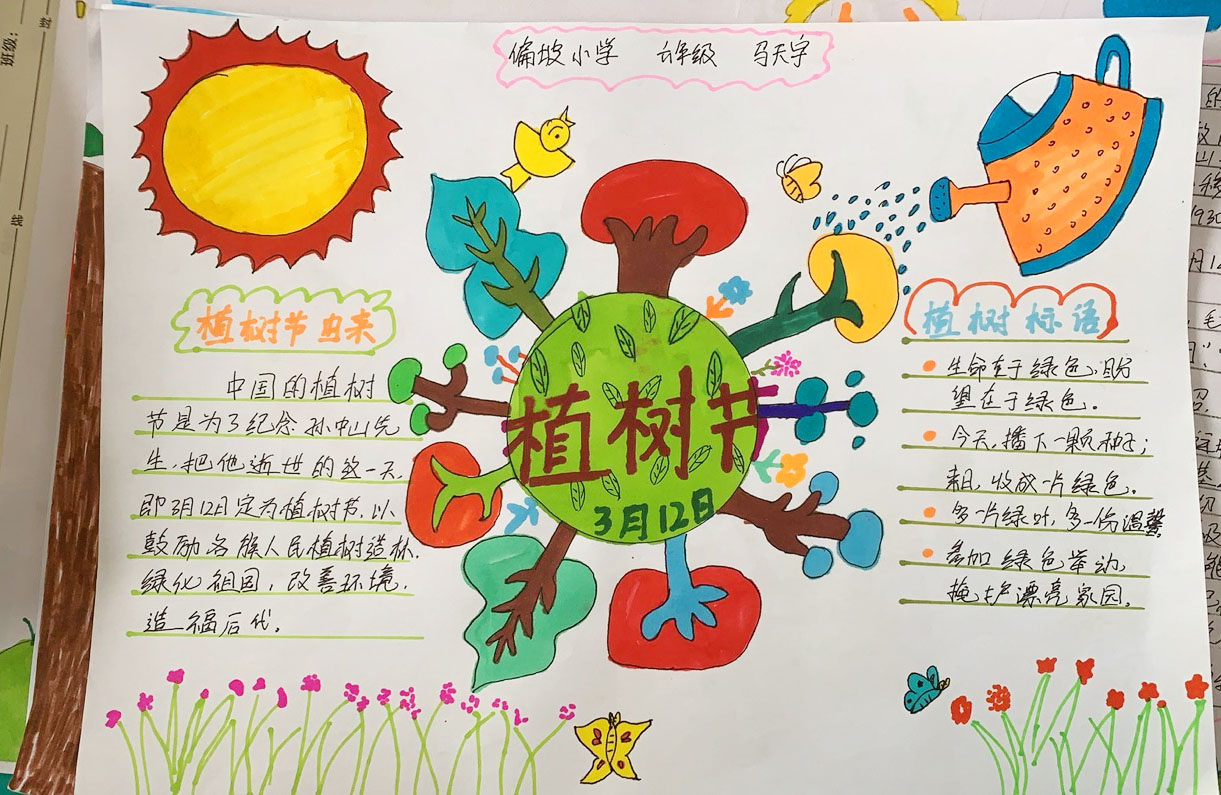 偏坡小学 六年级 马天宇
植树节由来
中国的植树
节是为了纪念孙中山先
生,把他逝世的这一天,
即3月12日定为植树节,以
鼓励各族人民植树造林,
绿化祖国,改善环境,
造福后代。
植树节
3月12日
植树标语
生命在于绿色,盼
望在于绿色。
今天,播下一颗种子;
来日,收成一片绿色。
多一片绿叶,多一份温馨。
参加绿色举动,
掩护漂亮家园。
班级:
封
线
1930